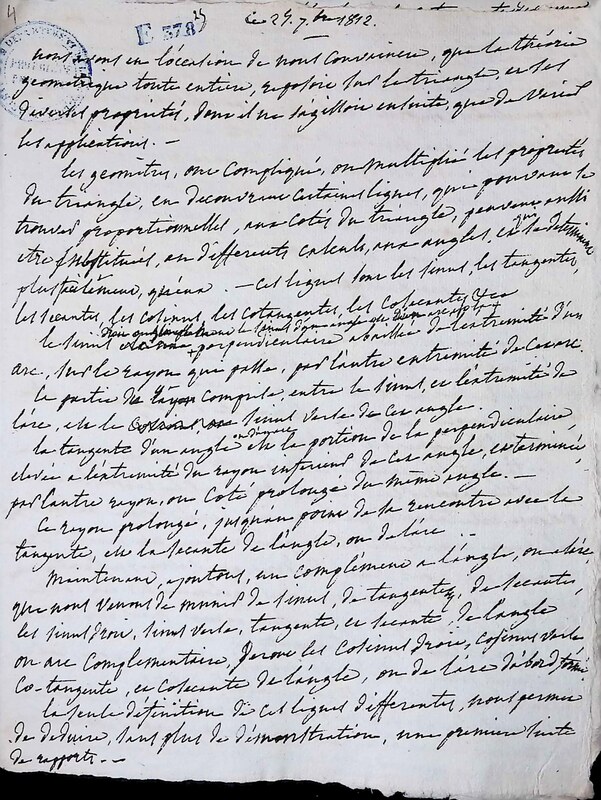 4
E 378
ce 24. 7bre 1812.
nous avons eu l'occasion de nous convaincre, que la théorie
géometrique toute entiere, repose sur le triangle, et ses
diverses propriétés, dont il ne s'agissoit ensuite, que de varier
les applications. —
les geomètres, ont compliqué, ont multiplié les propriétés
du triangle, en decouvrant certaines lignes, qui pouvant se
trouver proportionnelles, aux cotés du triangle, peuvent aussi
etre substituées, en differents calculs, aux angles, et se determiner
plus aisément, qu'eux. — ces lignes sont les sinus, les tangentes,
les secantes, les cosinus, les cotangentes, les cosecantes &ca
le sinus est une perpendiculaire abaissée de l'extremité d'un
arc, sur le rayon qui passe, par l'autre extremité de cet arc.
la partie du rayon comprise, entre le sinus, et l'extremité de
l'arc, est le sinus verse de cet angle.
la tangente d'un angle ou d'un arc est la portion de la perpendiculaire
elevée a l'extremité du rayon inferieur de cet angle, et terminée
par l'autre rayon, ou coté prolongé du même angle. —
Ce rayon prolongé, jusqu'au point de sa rencontre avec la
tangente, est la secante de l'angle, ou de l'arc.
Maintenant, ajoutons, un complément a l'angle, ou a l'arc,
que nous venons de munir de sinus, de tangentes, de secantes,
les sinus droit, sinus verse, tangente, et secante, de l'angle
ou arc complementaire, seront les cosinus droit, cosinus verse
co-tangente, et cosecante de l'angle, ou de l'arc d'abord formé
la seule définition de ces lignes differentes, nous permet
de deduire, sans plus de démonstration, une premiere suite
de rapports. —